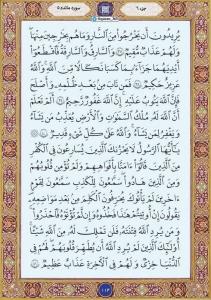 جزء ٦
سوره مائده ٥
يُرِيدُونَ أَن يَخْرُجُوا۟ مِنَ ٱلنَّارِ وَمَا هُم بِخَٰرِجِينَ مِنْهَا
وَلَهُمْ عَذَابٌ مُّقِيمٌ ٣٧ وَٱلسَّارِقُ وَٱلسَّارِقَةُ فَٱقْطَعُوٓا۟
أَيْدِيَهُمَا جَزَآءًۢ بِمَا كَسَبَا نَكَٰلًا مِّنَ ٱللَّهِ وَٱللَّهُ
عَزِيزٌ حَكِيمٌ ٣٨ فَمَن تَابَ مِنۢ بَعْدِ ظُلْمِهِۦ وَأَصْلَحَ
فَإِنَّ ٱللَّهَ يَتُوبُ عَلَيْهِ إِنَّ ٱللَّهَ غَفُورٌ رَّحِيمٌ ٣٩ أَلَمْ تَعْلَمْ
أَنَّ ٱللَّهَ لَهُۥ مُلْكُ ٱلسَّمَٰوَٰتِ وَٱلْأَرْضِ يُعَذِّبُ مَن يَشَآءُ
وَيَغْفِرُ لِمَن يَشَآءُ وَٱللَّهُ عَلَىٰ كُلِّ شَىْءٍ قَدِيرٌ ٤٠
يَٰٓأَيُّهَا ٱلرَّسُولُ لَا يَحْزُنكَ ٱلَّذِينَ يُسَٰرِعُونَ فِى ٱلْكُفْرِ
مِنَ ٱلَّذِينَ قَالُوٓا۟ ءَامَنَّا بِأَفْوَٰهِهِمْ وَلَمْ تُؤْمِن قُلُوبُهُمْ
وَمِنَ ٱلَّذِينَ هَادُوا۟ سَمَّٰعُونَ لِلْكَذِبِ سَمَّٰعُونَ لِقَوْمٍ
ءَاخَرِينَ لَمْ يَأْتُوكَ يُحَرِّفُونَ ٱلْكَلِمَ مِنۢ بَعْدِ مَوَاضِعِهِۦ
يَقُولُونَ إِنْ أُوتِيتُمْ هَٰذَا فَخُذُوهُ وَإِن لَّمْ تُؤْتَوْهُ فَٱحْذَرُوا۟
وَمَن يُرِدِ ٱللَّهُ فِتْنَتَهُۥ فَلَن تَمْلِكَ لَهُۥ مِنَ ٱللَّهِ شَيْـًٔا
أُو۟لَٰٓئِكَ ٱلَّذِينَ لَمْ يُرِدِ ٱللَّهُ أَن يُطَهِّرَ قُلُوبَهُمْ لَهُمْ فِى
ٱلدُّنْيَا خِزْىٌ وَلَهُمْ فِى ٱلْءَاخِرَةِ عَذَابٌ عَظِيمٌ ٤١
١١٤